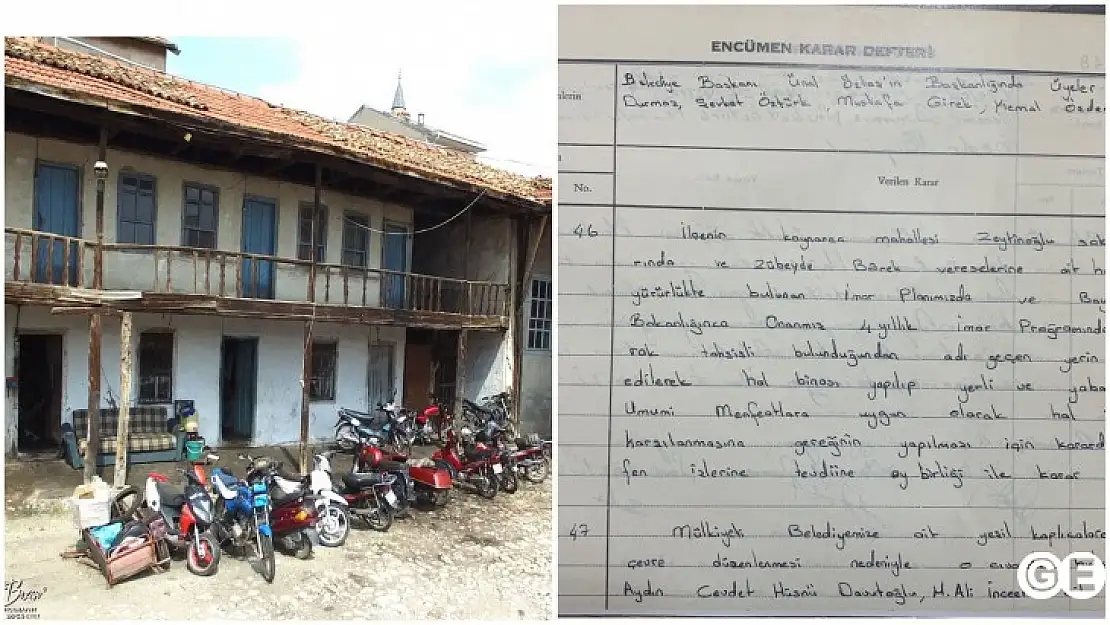 ENCÜMEN KARAR DEFTERİ
Belediye Başkanı Ünal Özbaş'ın Başkanlığında Üyeler
Durmaz, Serhat Öztürk, Mustafa Girek, Kemal Özden
No.
Verilen Karar
46 İlçenin kaynarca mahallesi Zeytinoğlu sok
rında ve Zübeyde Barek vereselerine ait
yürürlükte bulunan İmar Planımızda ve Bay
Bakanlığınca Onanmış 4 yıllık imar Programında
rak tahsisli bulunduğundan adı geçen yerin
edilerek hal binası yapılıp yerli ve yaba
Umumi Menfeatlara uygun olacak hal
karşılanmasına gereğinin yapılması için karard
fen işlerine tevdiine oy birliği ile karar
47 Mülkiyeti Belediyemize ait yeşil kaplıcalar
çevre düzenlenmesi nedeniyle o
Aydın Cevdet Hüsnü Davutoğlu, H. Ali İnceer
GE